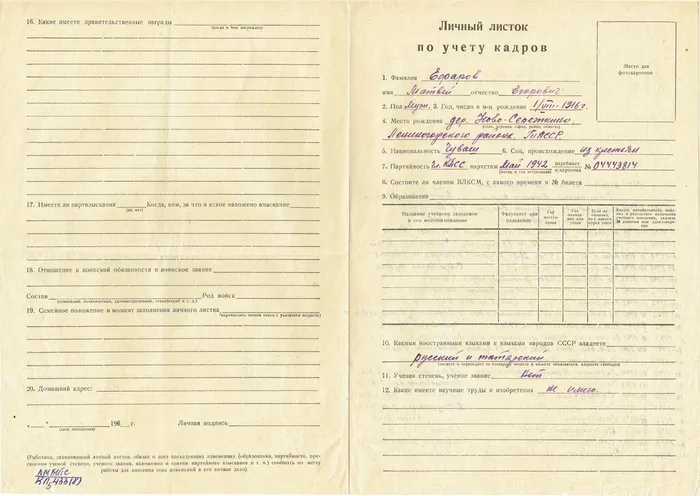 16. Какие имеете правительственные награды
(когда и чем награждены)
17. Имеете ли партвзыскания
(да, нет)
Когда, кем, за что и какое наложено взыскание
18. Отношение к воинской обязанности и воинское звание
Состав
Род войск
19. Семейное положение в момент заполнения личного листка
20. Домашний адрес:
" " 196 г.
Личная подпись
(дата заполнения)
(Работник, заполняющий личный листок, обязан о всех последующих изменениях (образовании, партийности, при-
своении ученой степени, ученого звания, наложении и снятии партийного взыскания и т. п.) сообщить по месту
работы для внесения этих изменений в его личное дело).
КП 433(8)
Личный листок
по учету кадров
Место для
фотокарточки
1. Фамилия Егоров
имя Матвей отчество Егорович
2. Пол Муж. 3. Год, число и м-ц рождения 1/VIII-1916 г.
4. Место рождения дер. Ново-Сережкино,
(село, деревня, город, район, область)
Лениногорского района ТАССР.
5. Национальность Чуваш 6. Соц. происхождение из крестьян
7. Партийность Чл. КПСС партстаж Май 1942 партбилет № 04443814
и карточка
8. Состоите ли членом ВЛКСМ, с какого времени и № билета
9. Образование
Название учебного заведения
и его местонахождение
Факультет или
отделение
Год
поступления
10. Какими иностранными языками и языками народов СССР владеете
русский и татарский
11. Ученая степень, ученое звание нет
12. Какие имеете научные труды и изобретения не имею.